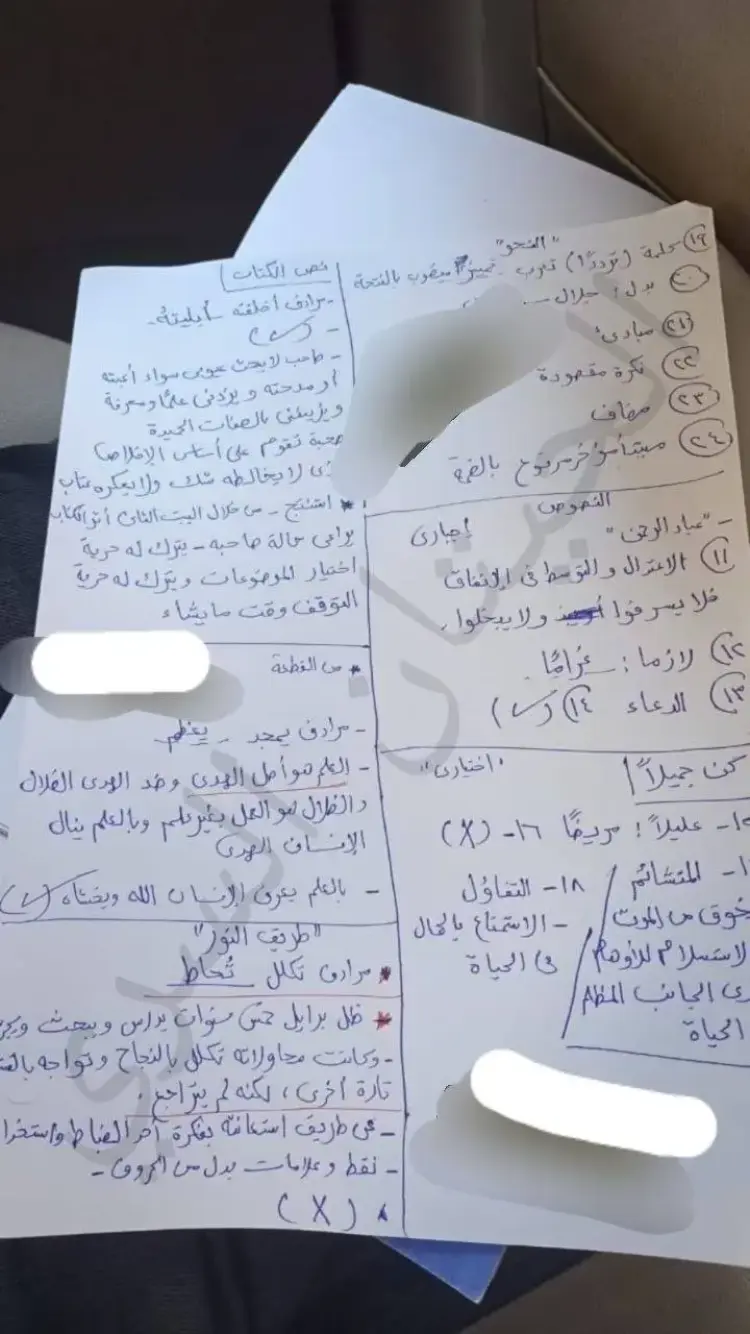 "النحو"
١٩ كلمة (ترددًا) تعرب تمييز منصوب بالفتحة
٢٠ بدل: خلال
٢١ مبادئ
٢٢ نكرة مقصودة
٢٣ مضاف
٢٤ مبتدأ مؤخر مرفوع بالضمة
النصوص
- "عباد الرحمن" إجباري
١١ الاعتدال والتوسط في الإنفاق
فلا يسرفوا ولا يبخلوا.
١٢ لازما: غرامًا.
١٣ الدعاء ١٤ (✓)
كن جميلاً "اختياري"
١٥- عليلاً: مريضًا ١٦- (X)
المتشائم
خوف من الموت
الاستسلام للأوهام
يرى الجانب المظلم
الحياة
١٨- التفاؤل
- الاستمتاع بالجمال
في الحياة
نص الكتاب
- مرادف أخلقته أبليته.
- (✓)
- صاحب لا يبحث عيوبي سواء أعبته
أو مدحته ويزدني علمًا ومعرفة
ويزينني بالصفات الجيدة
صحبة تقوم على أساس الإخلاص
لا يخالطه شك ولا يعكره عتاب
* استنتج - من خلال البيت الثاني أثر الكتاب
يراعي حالة صاحبه - يترك له حرية
اختيار الموضوعات ويترك له حرية
التوقف وقت ما يشاء
* من القطعة
- مرادف يمجد - يعظم
- العلم هو أصل الهدى وضد الهدى الضلال
والضلال هو العمل بغير علم وبالعلم ينال
الإنسان الهدى
- بالعلم يعرف الإنسان الله ويخشاه (✓)
"طريق النور"
* مرادف تكلل تُحاط
* ظل برايل خمس سنوات يدرس ويبحث ويجر
- وكانت محاولاته تكلل بالنجاح وتواجه بالف
تارة أخرى، لكنه لم يتراجع.
- عن طريق استعانة بفكرة الضباط واستخدا
- نقط وعلامات بدل من الحروف -
(X)
الجيتان السري